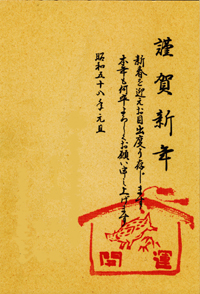 謹賀新年
新春を迎えお目出度う存じます
本年も何卒よろしくお願い申し上げます
昭和五十八年元旦
開運